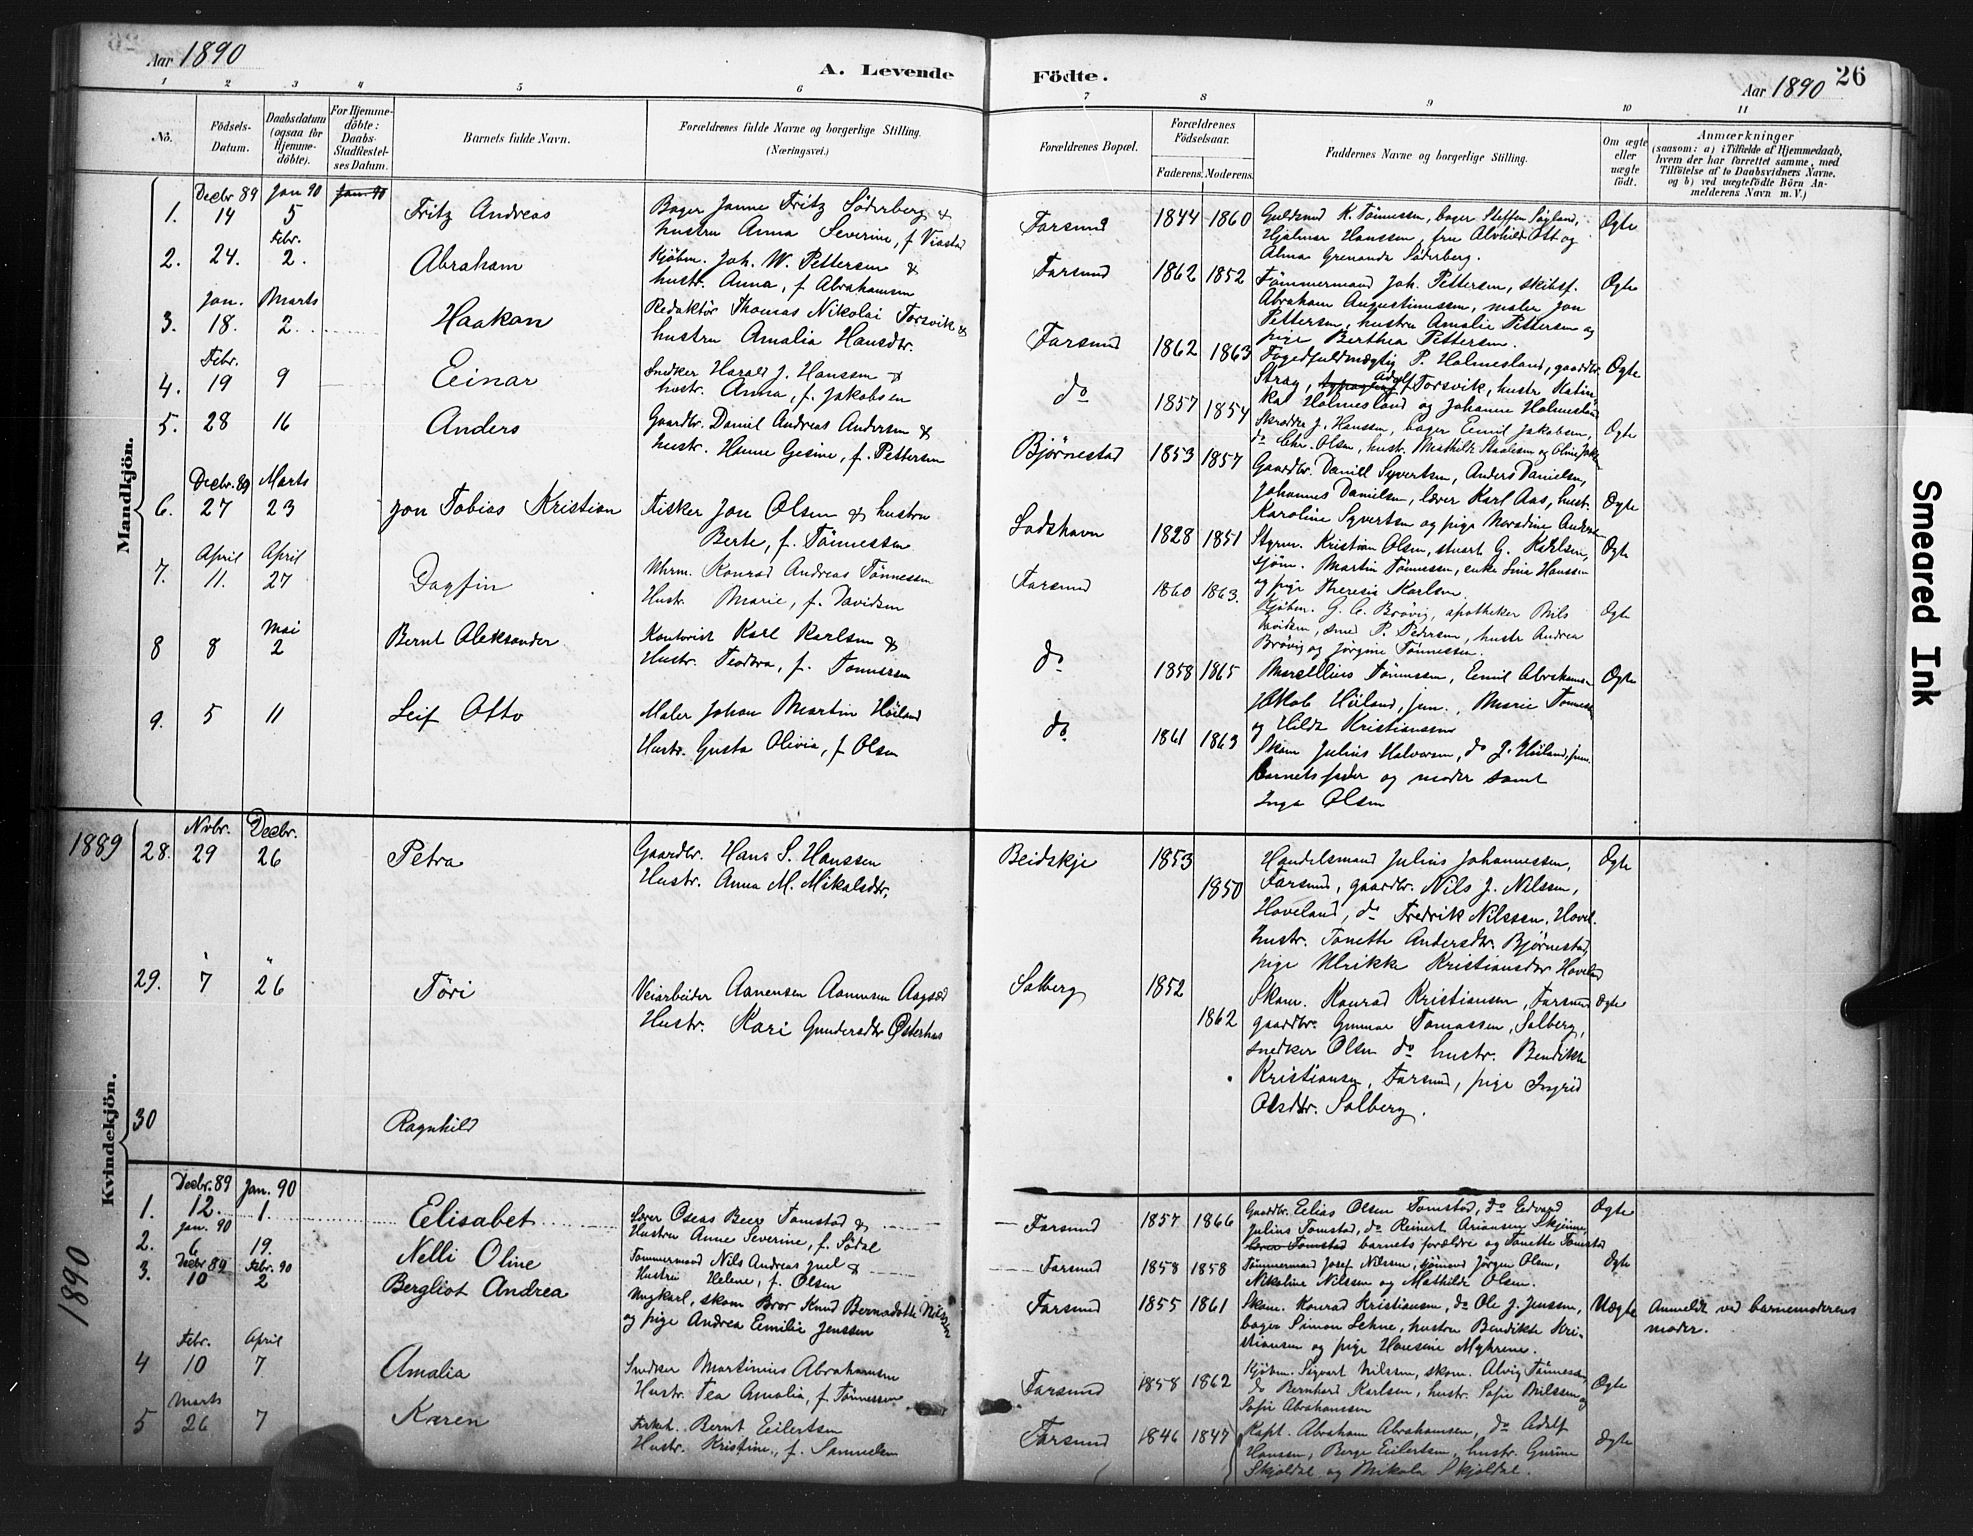 Aar 1890
A. Levende Födte.
Aar 1890
26
1 2 3 4 5 6 7 8 9 10 11
No.
Födsels-Datum.
Daabsdatum (ogsaa for Hjemme-döbte).
For Hjemme-döbte: Daabs-Stadfæstel-ses Datum.
Barnets fulde Navn.
Forældrenes fulde Navne og borgerlige Stilling. (Næringsvei.)
Forældrenes Bopæl.
Forældrenes Födselsaar.
Faderens. Moderens.
Faddernes Navne og borgerlige Stilling.
Om ægte eller uægte födt.
Anmærkninger
(saasom: a) i Tilfælde af Hjemmedaab,
hvem der har forrettet samme, med
Tilföielse af to Daabsvidners Navne.
og b) ved uægtefödte Börn An-
melderens Navn m. V.)
Mandkjön.
Decbr 89 Jan 90 Jan 90
1. 14 5 Fritz Andreas
Bager Janne Fritz Söderberg &
hustru Anna Severine, f.
Farsund 1844 1860
Guldsmed K. Tönnessen, bager Steffen
Hjalmar Hanssen, fru Alvhild Ott og
Alma Söderberg.
Ogte
Febr.
2. 24. 2. Abraham
Kjöbm. Joh. W. Pettersen &
hustr. Anna, f. Abrahamsen
Farsund 1862 1852
Tömmermand Joh. Pettersen, skibsf.
Abraham Augustinussen, maler Jon
Pettersen, hustru Amalie Pettersen og
pige Berthea Pettersen.
Ogte
Jan. Marts
3. 18. 2. Haakon
Redaktör Thomas Nikolai Torsvik &
hustru Amalia Hansdtr.
Farsund 1862 1863
Fogedfuldmægtig P. Holmesland, gaardbr.
Stray, Adolf Torsvik, hustr. Katin-
ka Holmesland og Johanne Holmesland
Ogte
Febr.
4. 19 9 Einar
Snedker Harald J. Hanssen &
hustr. Anna, f. Jakobsen
do 1857 1854
J. Hanssen, bager Emil Jakobsen,
do Chr. Olsen, hustr. Mathilde
Ogte
5. 28 16 Anders
Gaardbr. Daniel Andreas Andersen &
hustr. Hanne Gesine, f. Pettersen
Bjørnestad 1853 1857
Gaardbr. Daniel Syvertsen, Anders Danielsen,
Johannes Danielsen, lærer Karl Aas, hustr.
Karoline Syvertsen og pige
Ogte
Decbr. 89 Marts
6. 27 23 Jon Tobias Kristian
Fisker Jon Olsen & hustru
Berte, f. Tönnessen
Lodshavn 1828 1851
Styrm. Kristian Olsen, stuert G. Karlsen,
sjöm. Martin Tönnessen, enke Hanssen
og pige Theresie Karlsen.
Ogte
April April
7. 11. 27 Dagfin
Uhrm. Konrad Andreas Tönnessen
Hustr. Marie, f. Davidsen
Farsund 1860 1863.
Kjöbm. G. C. Brövig, apotheker Nils
smed P. Pedersen, hustr. Andrea
Brövig og Jörgine Tönnessen.
Ogte
Mai
8 8 2 Bernt Aleksander
Kontorist Karl Karlsen &
Hustr. Teodora, f.
do 1858 1865
Marcellius Tönnessen, Emil Abrahamsen
Jakob Höiland, jun., Marie
og Hilda Kristianssen
Ogte
9. 5 11 Leif Otto
Maler Johan Martin Höiland
Hustr. Gusta Olivia, f. Olsen
do 1861 1863
Skom. Julius Halvorsen, do J. Höiland, jun.
barnets fader og moder samt
Inga Olsen
1889
Novbr. Decbr.
28. 29 26 Petra
Gaardbr. Hans S. Hanssen
Hustr. Anna M. Mikalsdtr,
Beidskje 1853 1850
Handelsmand Julius Johannessen,
Farsund, gaardbr. Nils J. Nilssen,
Hoveland, do Fredrik Nilssen, Hovel.
hustr. Tonette Andersdtr. Bjørnestad
pige Ulrikke Kristiansdtr Hoveland
Ogte
29. 7 26 Töri
Veiarbeider Aanensen Aanensen
Hustr. Kari Gundersdtr Østerhus
Solberg 1852 1862
Skom. Konrad Kristiansen, Farsund
gaardbr. Gunnar Tomassen, Solberg,
snedker Olsen do hustr. Bendikte
Kristiansen, Farsund, pige Ingrid
Olsdtr. Solberg.
Ogte
Kvindekjön.
30 Ragnhild
1890
Decbr. 89 Jan. 90
1. 12. 1. Elisabet
Lærer Oseas Berg Tomstad &
Hustru Anne Severine, f. Södal
Farsund 1857 1866
Gaardbr. Elias Olsen Tomstad, do Edvard
Julius Tomstad, do Reinert
barnets forældre og Tonette Tomstad
Ogte
Jan. 90
2. 6 19. Nelli Oline
Tömmermand Nils Andreas Juel &
Hustru Helene, f. Olsen
Farsund 1858 1858
Tömmermand Josef Nilssen, sjömand Jörgen Olsen,
Nikoline Nilssen og Mathilde Olsen.
Ogte
Decbr 89 Febr. 90
3. 10 2 Bergliot Andrea
Ungkarl, skom Bror Knud Bernadotte Nilssen
og pige Andrea Emilie Jenssen
Farsund 1855 1861
Skom. Konrad Kristiansen, do Ole J. Jenssen,
bager Simon Lehne, hustru Bendikte Kri-
stiansen og pige Hansine Myhrene.
Uægte
Anmeldt ved barnemoderens
moder.
Febr. April
4 10 7 Amalia
Snedker Martinius Abrahamsen
Hustr. Tea Amalia, f. Tönnessen
Farsund 1858 1862
Kjöbm. Sigvart Nilssen, skom. Alvig Tönnessen
do Bernhard Karlsen, hustr. Sofie Nilssen og
Sofie Abrahamsen
Ægte
Marts
5 26 7 Karen
Bernt Eilertsen
Hustr. Kristine, f. Samuelsen
Farsund 1846 1847
Kapt. Abraham Abrahamsen, do Adolf
Hanssen, Berge Eilertsen, hustr. Gurine
Skjoldal og Mikala Skjoldal.
Ægte
Smeared Ink